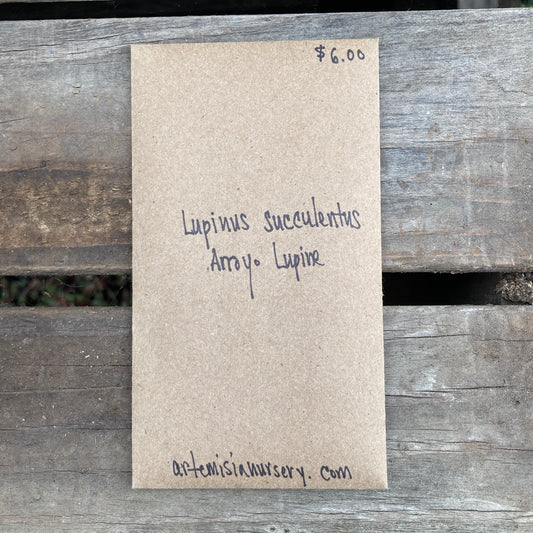 $6.00
Lupinus succulentus
Arroyo Lupine
artemisianursery.com